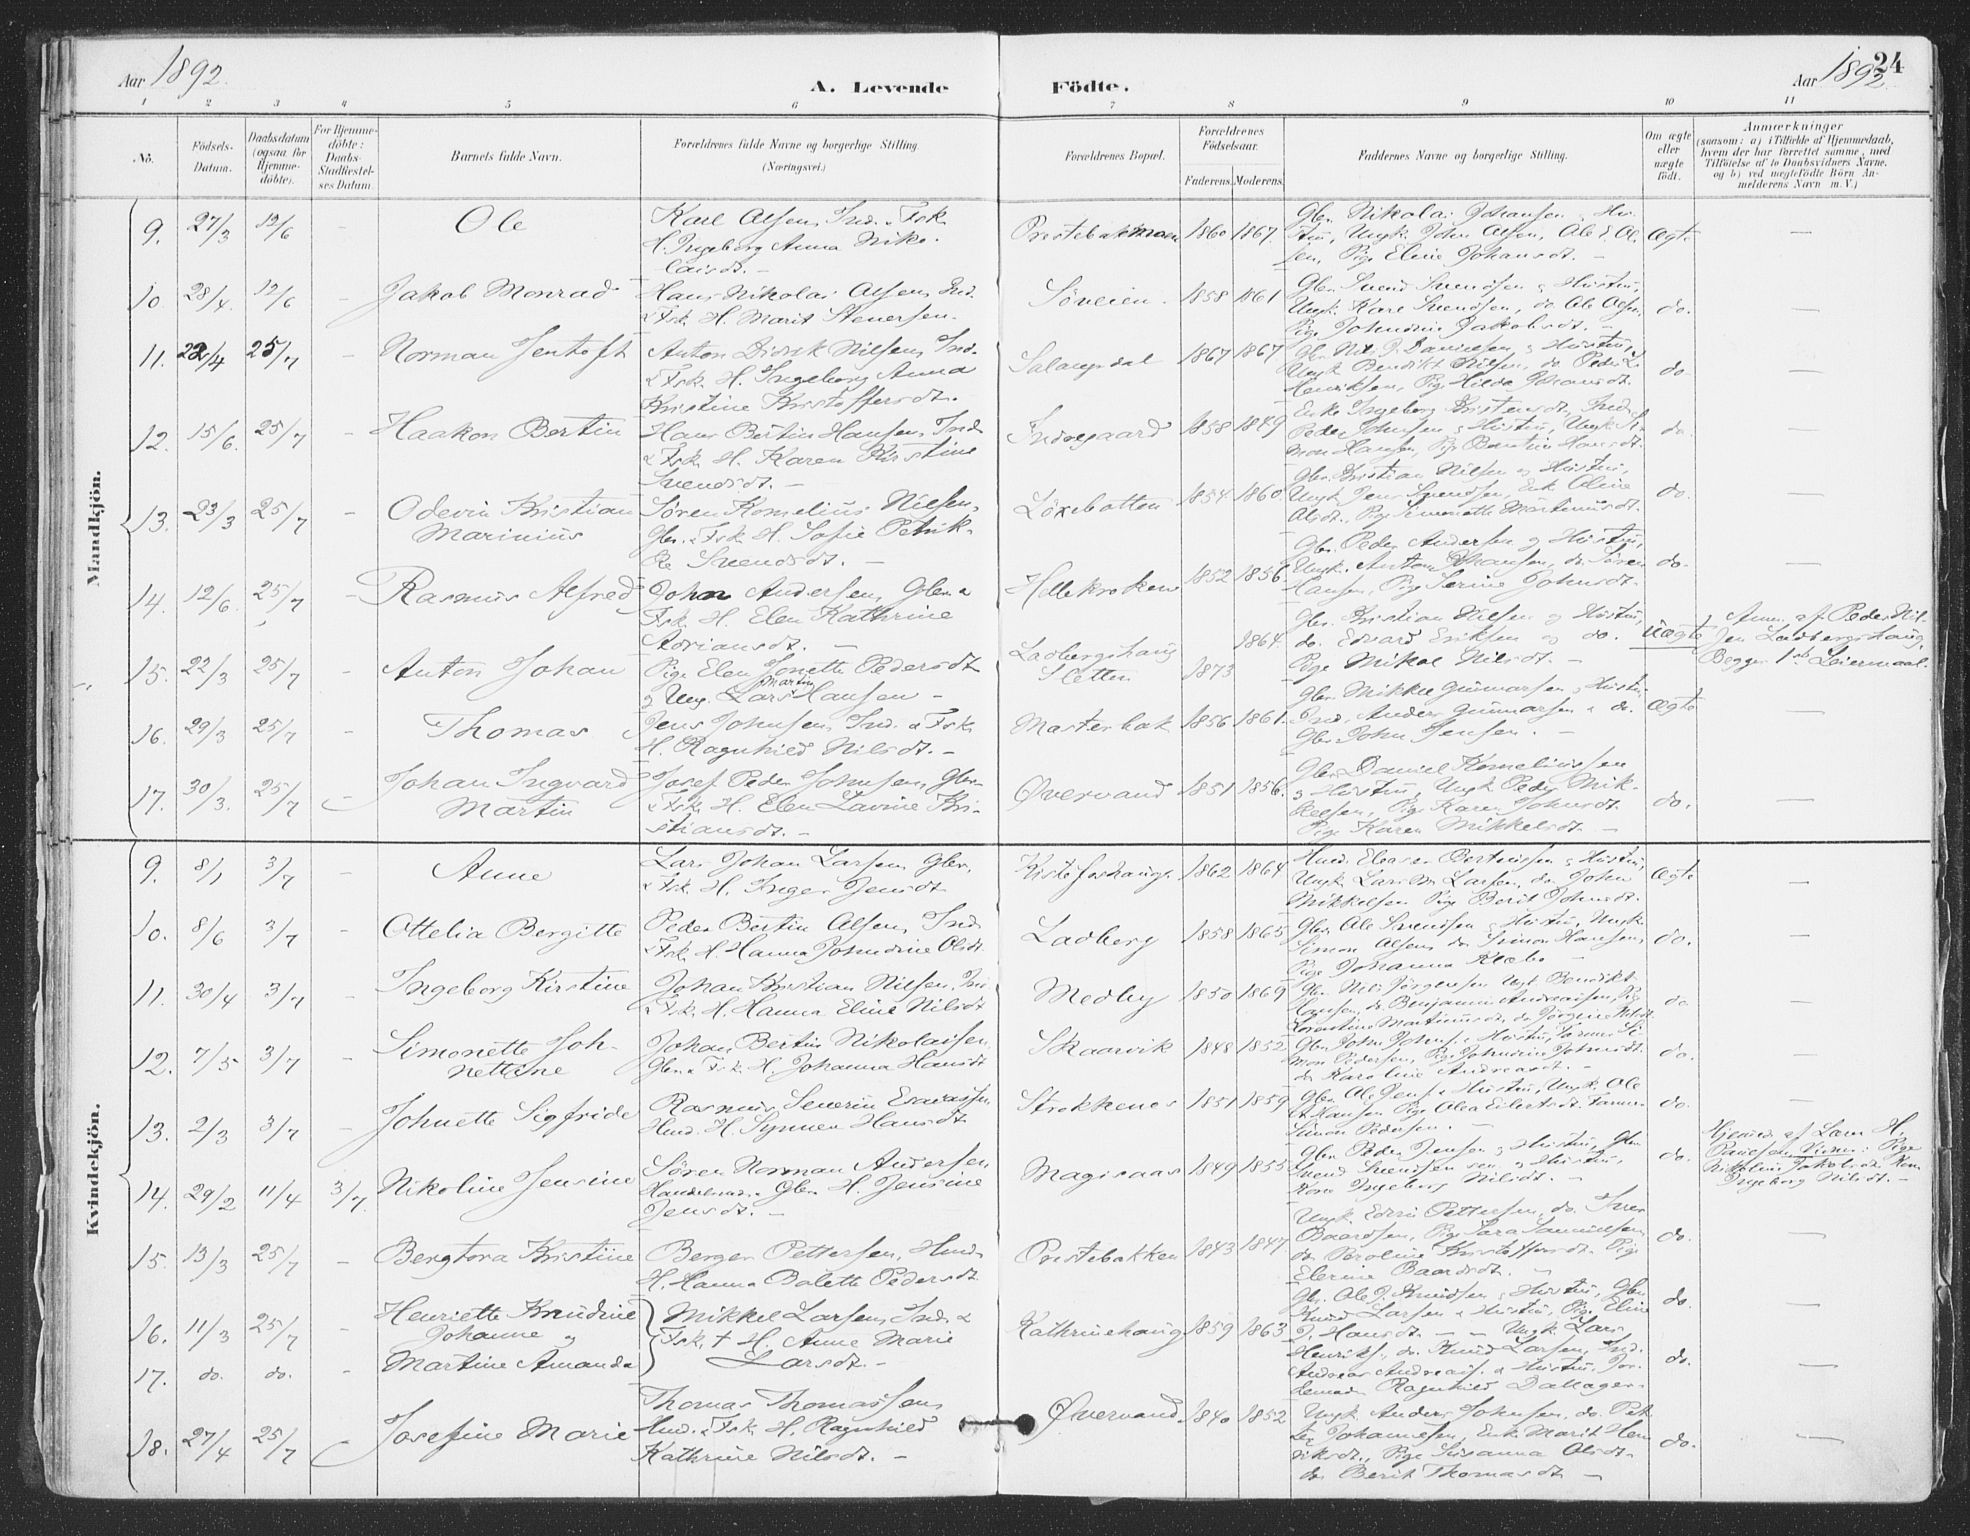 Aar 1892.
A. Levende Födte.
Aar 1892
24
1 2 3 4 5 6 7 8 9 10 11
No.
Födsels-Datum.
Daabsdatum (ogsaa for Hjemme-døbte).
For Hjemme-døbte: Daabs-Stadfæstel-ses Datum.
Barnets fulde Navn.
Forældrenes fulde Navne og borgerlige Stilling. (Næringsvei.)
Forældrenes Bopæl.
Forældrenes Födselsaar.
Faderens. Moderens.
Faddernes Navne og borgerlige Stilling.
Om ægte eller uægte födt.
Anmærkninger
(saasom: a) i Tilfælde af Hjemmedaab, hvem der har forrettet samme, med Tilföielse af to Daabsvidners Navne, og b) ved uægtefödte Börn An-melderens Navn m. V.)
Mandkjön.
9. 27/3 12/6 - Ole
Karl Olsen, Ind. & Fsk.
H. Ingeborg Anna Niko-
laisdt. -
Prestebakmoen 1860 1867.
Gbr. Nikolai Johansen & Hu-
stru, Ungk. John Olsen, Ole E. Ol-
sen, Pige Eline Johansdt. -
Ægte -
10. 28/4. 12/6 - Jakob Monrad
Hans Nikolai Olsen, Ind.
& Fsk. H. Marit Stenersen.
Söveien. 1858 1861
Gbr. Svend Svendsen & Hustru,
Ungk. Kare Svendsen, do Ole Olsen,
Pige Johndine Jakobsdt. -
do. -
11. 22/4 25/7 - Norman Jentoft
Anton Didrik Nilsen, Ind.
& Fsk. H. Ingeborg Anna
Kristine Kristoffersdt.
Salangsdal 1867 1867
Gbr. Nils P. Danielsen & Hustru,
Ungk Bendikt Nilsen, do Peder L.
Henriksen, Pige Hilda Johansdt.
do -
12. 15/6. 25/7 - Haakon Bertin
Hans Bertin Hansen, Ind
& Fsk. H. Karen Kirstine
Svendsdt. -
Indregaard 1858 1849
Enke Ingeborg Kristensdt, Ind.
Peder Johnsen & Hustru, Ungk Si-
mon Hansen, Pige Berntine Hansdt.
do. -
13. 23/3 25/7 - Odevin Kristian
Marinius
Sören Kornelius Nilsen,
Gbr. & Fsk. H. Sofie Petrik-
ke Svendsdt. -
Löxebotten 1854 1860
Gbr. Kristian Nilsen og Hustru,
Ungk Jens Svendsen, Enk Oline
Olsdt., Pige Simonette Martinusdt.
do. -
14. 12/6. 25/7 - Rasmus Alfred
John Andersen, Gbr. &
Fsk. H. Elen Kathrine
Adriansdt. -
Hellekroken 1852 1856.
Gbr. Peder Andersen og Hustru,
Ungk. Anton Johansen, do. Sören
Hansen, Pige Serine Johnsdt.
do. -
15. 22/3 25/7 - Anton Johan
Pige Elen Jonette Pedersdt
& Ung. Lars Martin Hansen -
Ladbergshaug
Sletten 1873 1864.
Gbr. Kristian Nilsen og Hustru,
do. Edvard Eriksen og do.
Pige Mikal Nilsdt. -
Uægte
Anm. af Peder Nil-
sen Ladbergshaug,
Begges 1ste Leiermaal.
16. 29/3 25/7 - Thomas
Jens Johnsen, Ind. & Fsk.
H. Ragnhild Nilsdt. -
Masterbak 1856 1861.
Gbr. Mikkel Gunnarsen & Hustru
Ind. Anders Gunnarsen & do.
Gbr. John Jensen. -
Ægte -
17. 30/3. 25/7 Johan Ingvard
Martin
Josef Peder Johnsen, Gbr.
& Fsk. H. Elen Lavine Kri-
stiansdt. -
Øvervand 1851 1856.
Gbr. Daniel Korneliussen
& Hustru, Ungk Peder Mik-
kelsen, Pige Karen Johnsdt.
Pige Karen Mikkelsdt. -
do. -
Kvindekjön.
9. 8/1 3/7 - Anne
Lars Johan Larsen, Gbr.
& Fsk. H. Inger Jensdt
Kistefoshaug. 1862 1864
Husd. Eleaser Berthussen & Hustru,
Ungk Lars M Larsen, do John
Mikkelsen Pige Berit Johnsdt.
Ægte -
10. 8/6 3/7 - Ottelia Bergitte
Peder Bertin Olsen, Ind
& Fsk. H. Hanna Johndine Olsdt
Ladberg 1858 1865
Gbr. Ole Svendsen & Hustru, Ungk.
Simon Olsen, do Simon Hansen,
Pige Johanna Klebo -
do. -
11. 30/4 3/7 - Ingeborg Kirstine
Johan Kristian Nilsen, Ind
& Fsk. H. Hanna Eline Nilsdt
Medby 1850 1869
Gbr Nils Jörgensen Ungk Bendikt
Hansen, do Benjamin Andreassen, Pig
Lorentine Martinusdt, do Jörgine Nilsdt.
do -
12. 7/5 3/7 - Simonette Joh-
nettine
Johan Bertin Nikolaisen,
Gbr. & Fsk. H. Johanna Hansdt
Skaarvik 1848 1852
Gbr John Johns. & Hustru, Farmr Si-
mon Pedersen, Pige Johndine Johnsdt.
do Karoline Andreasdt. -
do. -
13. 2/3 3/7 - Johnette Sigfride
Rasmus Severin Esaiassen
Husd. H. Synnev Hansdt
Strokkenes 1851 1859
Gbr. Ol. Jens. & Hustru, Ungk. Ole
Hansen Pige Olea Eilertsdt. Farmr
Simon Pedersen. -
do. -
14. 29/2 11/4 3/7. Nikoline Jensine
Sören Norman Andersen,
Handelsmd. & Gbr. H. Jensine
Jensdt. -
Magisaas 1849 1855
Gbr. Peder Jensen & Hustru, Gbr.
Svend Svendsen sen. & Hustru,
Kone Ingeborg Nilsdt. -
do.
Hjemmed. af Lars H.
Paulsen. Vidner: Pige
Nikoline Jakobsdt., Kone
Ingeborg Nilsdt. -
15. 13/3 25/7 - Bergtora Kristine
Berger Pettersen, Husd.
H. Hanna Bolette Pedersdt
Prestebakken 1843 1847.
Ungk. Edvin Pettersen, do. Iver
Baardsen, Pige Sara Samuelsen,
do Peroline Kristoffersdt. Pige
Elerine Baardsdt. -
do. -
16. 11/3 25/7 - Henriette Knudine
Johanne og
Mikkel Larsen, Ind. &
Fsk. † H. Anne Marie
Larsdt. -
Kathrinehaug 1859 1863
Gbr. Ole J. Knudsen & Hustru, Gbr.
Knud Larsen & Hustru, Pige Eline
J. Hansdt. - - Ungk. Lars
do. -
17. do. do. - Martine Amanda
Henriks., do. Knud Larsen, Ind.
Andreas Andreass. & Hustru, Jor-
demoder Ragnhild Dalhager-
do. -
18. 27/4 25/7 Josefine Marie
Thomas Thomassen,
Husd. & Fsk. H. Ragnhild
Kathrine Nilsdt. -
Øvervand. 1840 1852
Ungk Anders Johnsen, do. Pet-
ter Johannesen, Enk Marit Hen-
riksdt., Pige Susanna Olsdt.
do Berit Thomasdt -
do. -